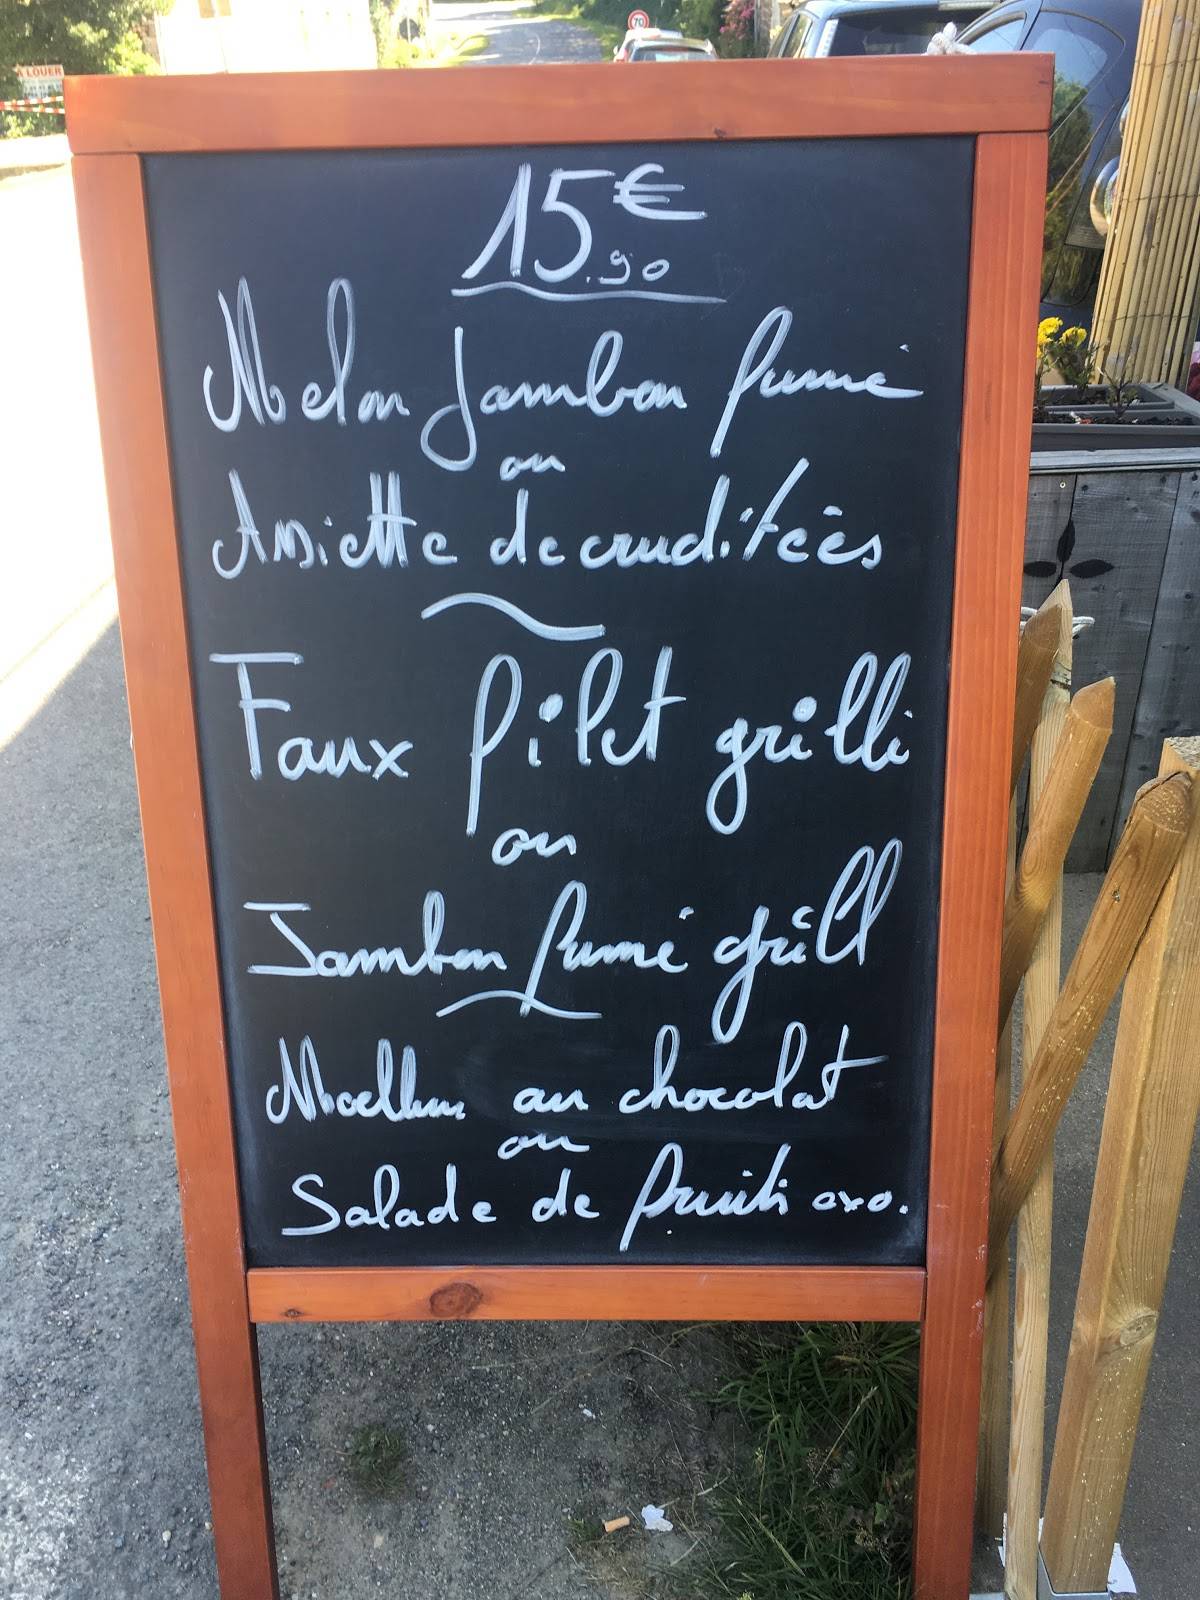 A LOUER
70
15.90€
Melon Jambon fumé
ou
Assiette de crudités
Faux filet grillé
ou
Jambon fumé grill
Moelleux au chocolat
ou
Salade de fruits exo.